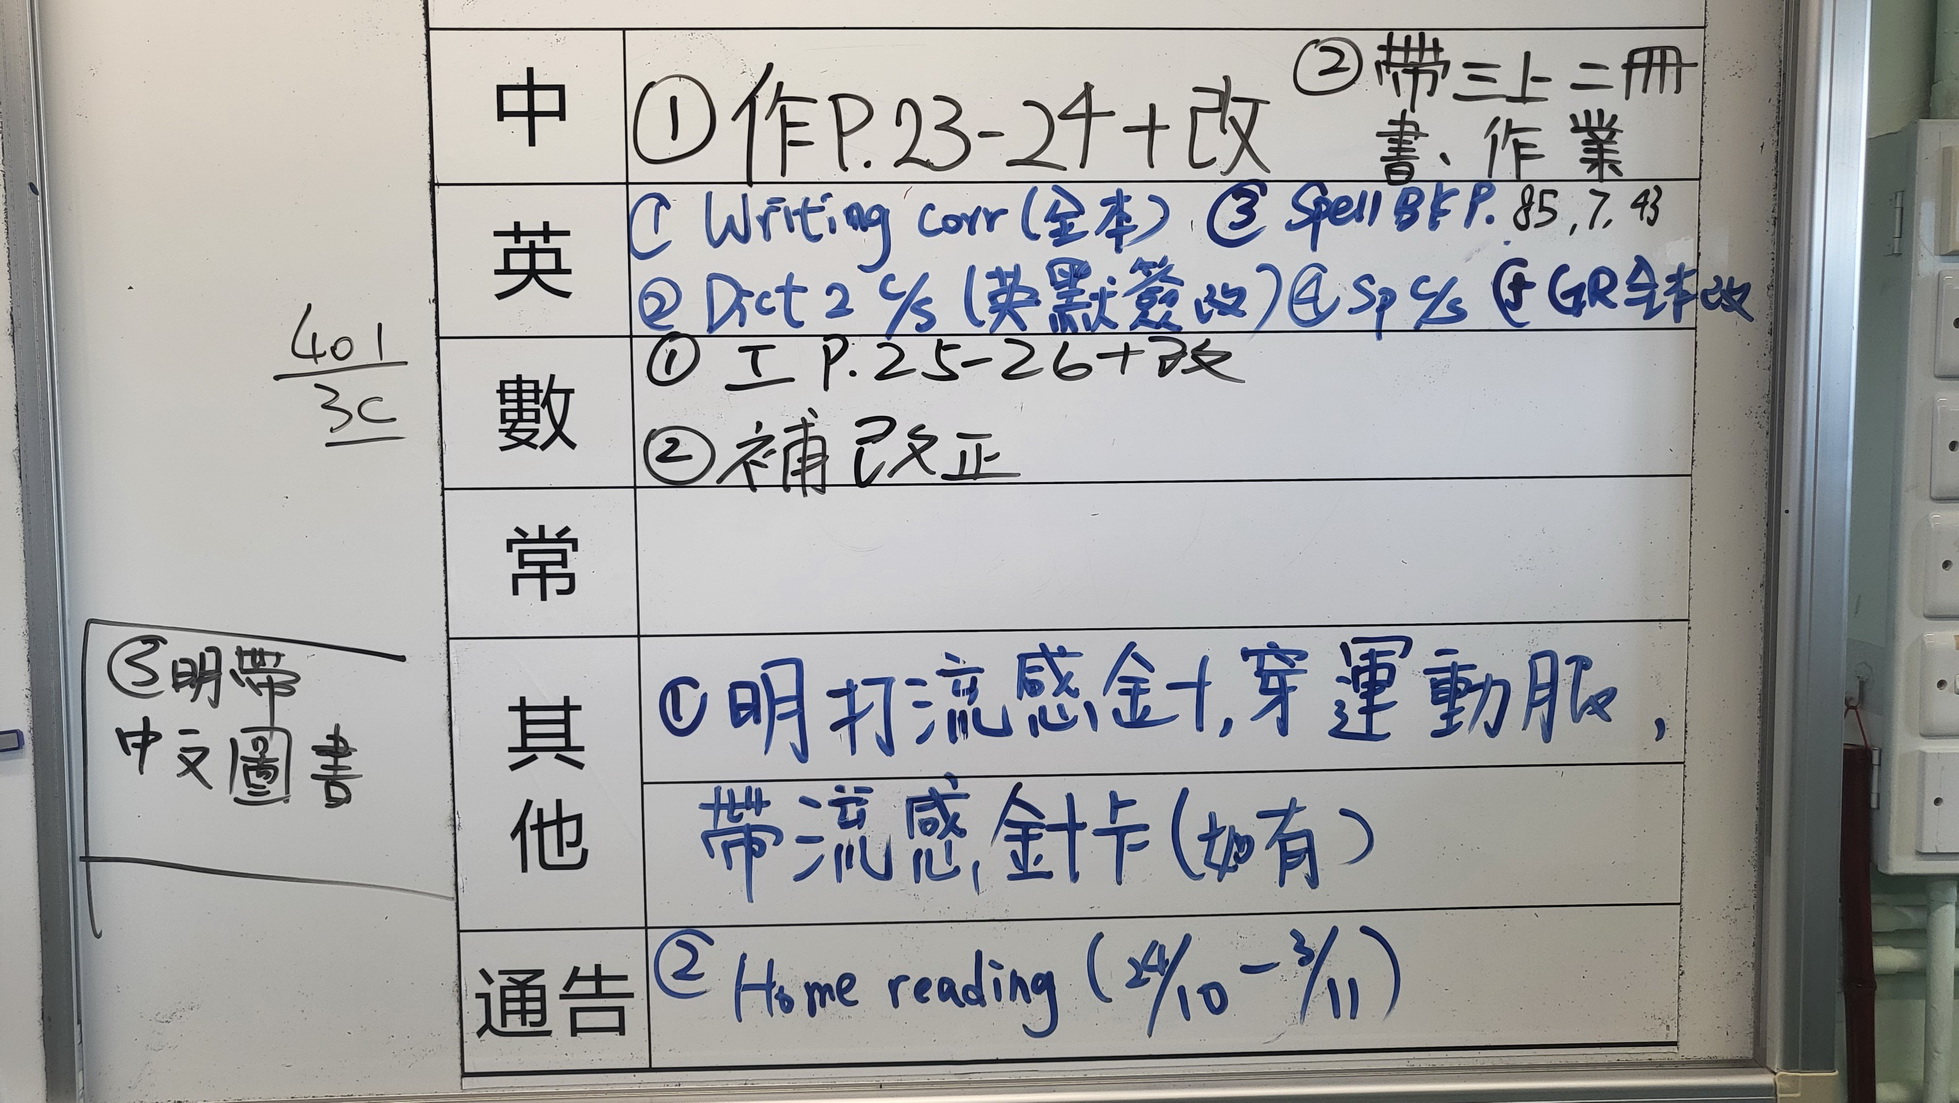 中
① 作P.23-24+改
② 帶三上二冊
書、作業
英
① Writing corr (全本) ③ Spell BK P. 85, 7, 43
② Dict 2 c/s (英默簽改) ④ Sp c/s ⑤ GR全本改
數
① 工 P.25-26+改
② 補改正
常
其他
① 明打流感針,穿運動服,
帶流感針卡(如有)
通告
② Home reading (24/10-3/11)
401
3C
③明帶
中文圖書